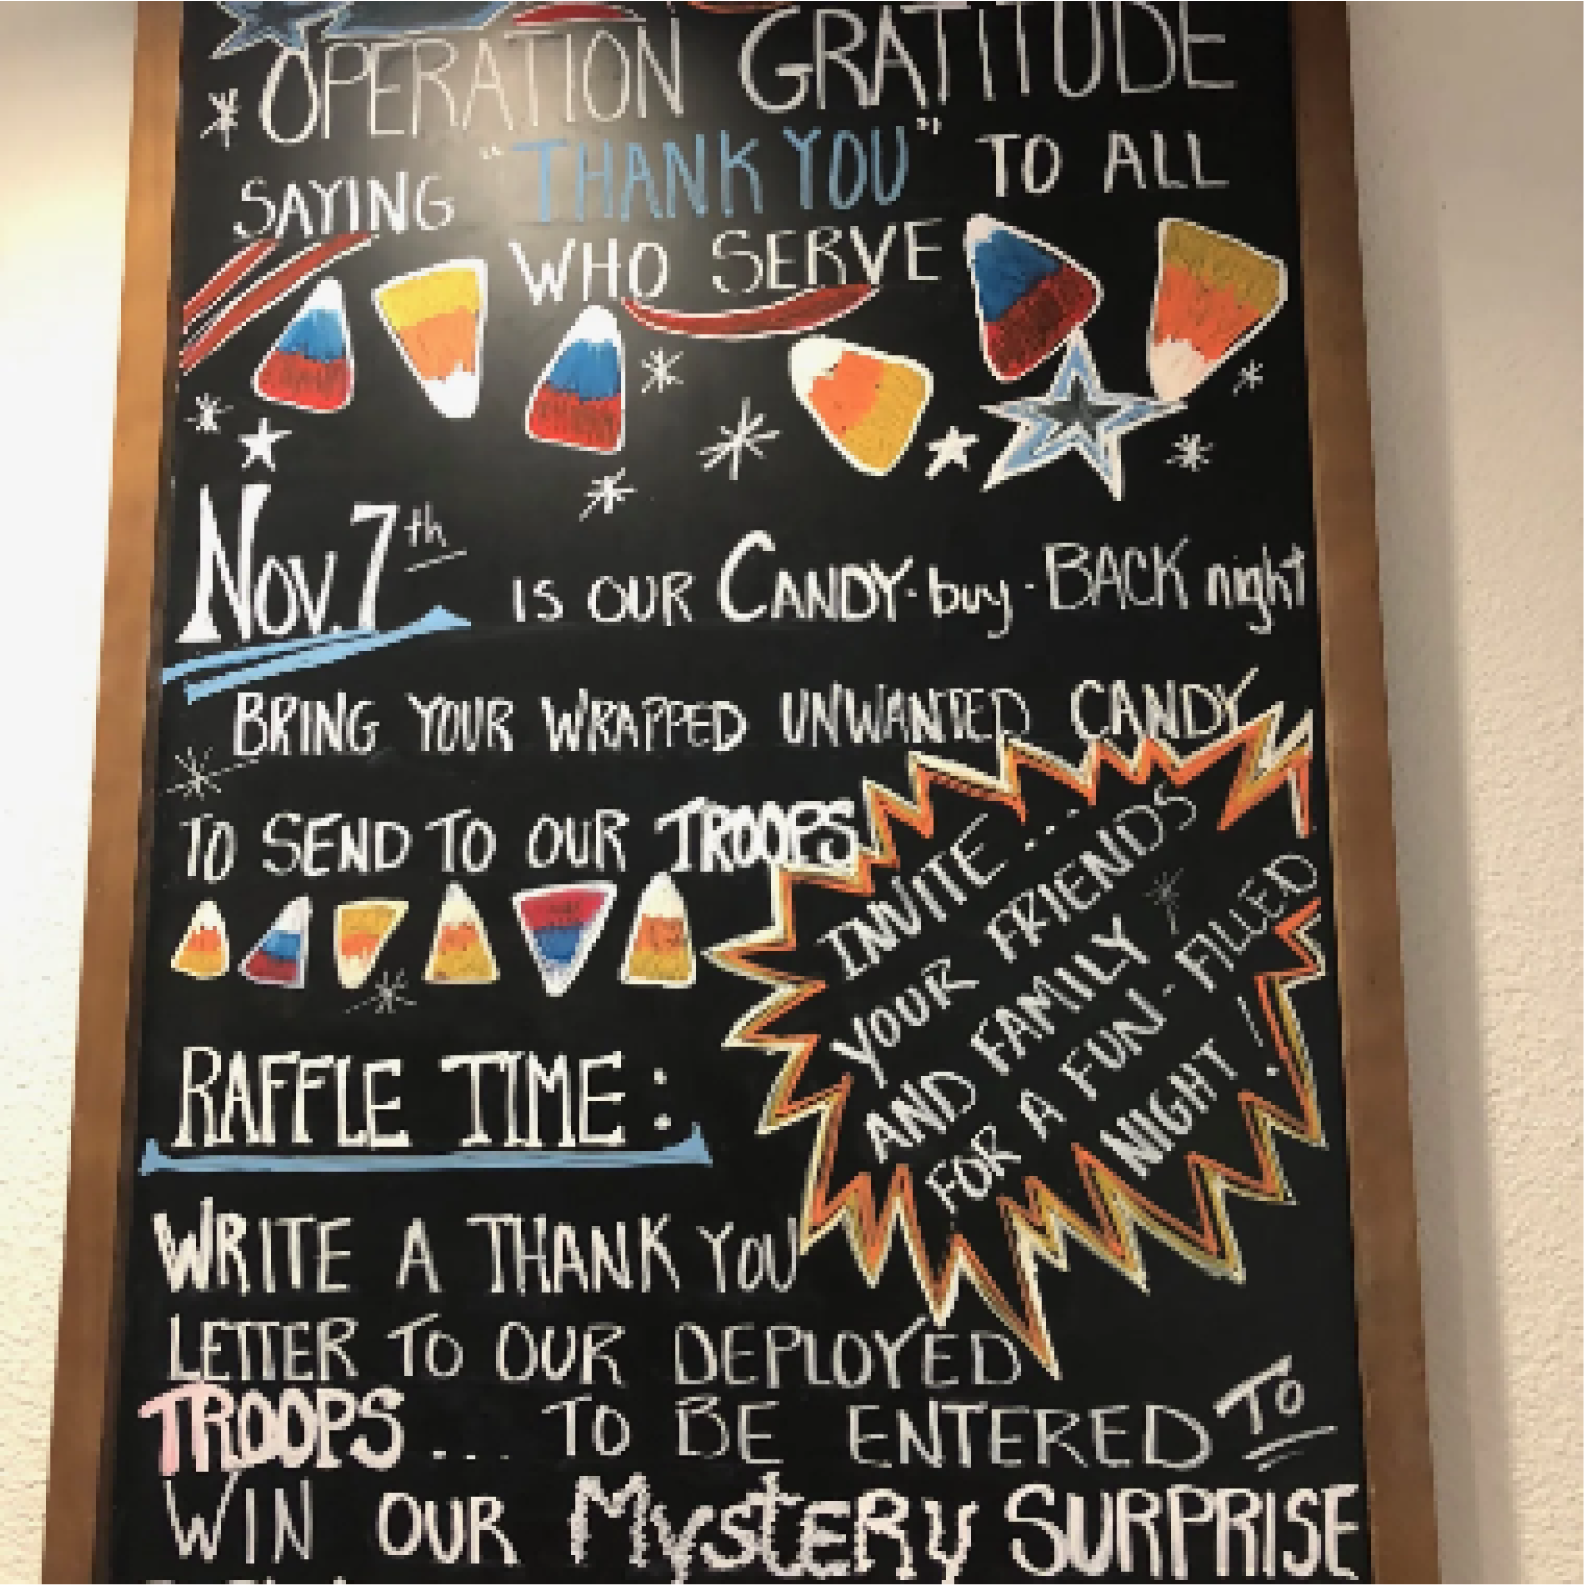 OPERATION GRATITUDE
SAYING "THANK YOU" TO ALL
WHO SERVE
Nov. 7th IS OUR CANDY-buy-BACK night
BRING YOUR WRAPPED UNWANTED CANDY
TO SEND TO OUR TROOPS
INVITE...
YOUR FRIENDS
AND FAMILY
FOR A FUN-FILLED
NIGHT!
RAFFLE TIME:
WRITE A THANK YOU
LETTER TO OUR DEPLOYED
TROOPS... TO BE ENTERED TO
WIN OUR MYSTERY SURPRISE